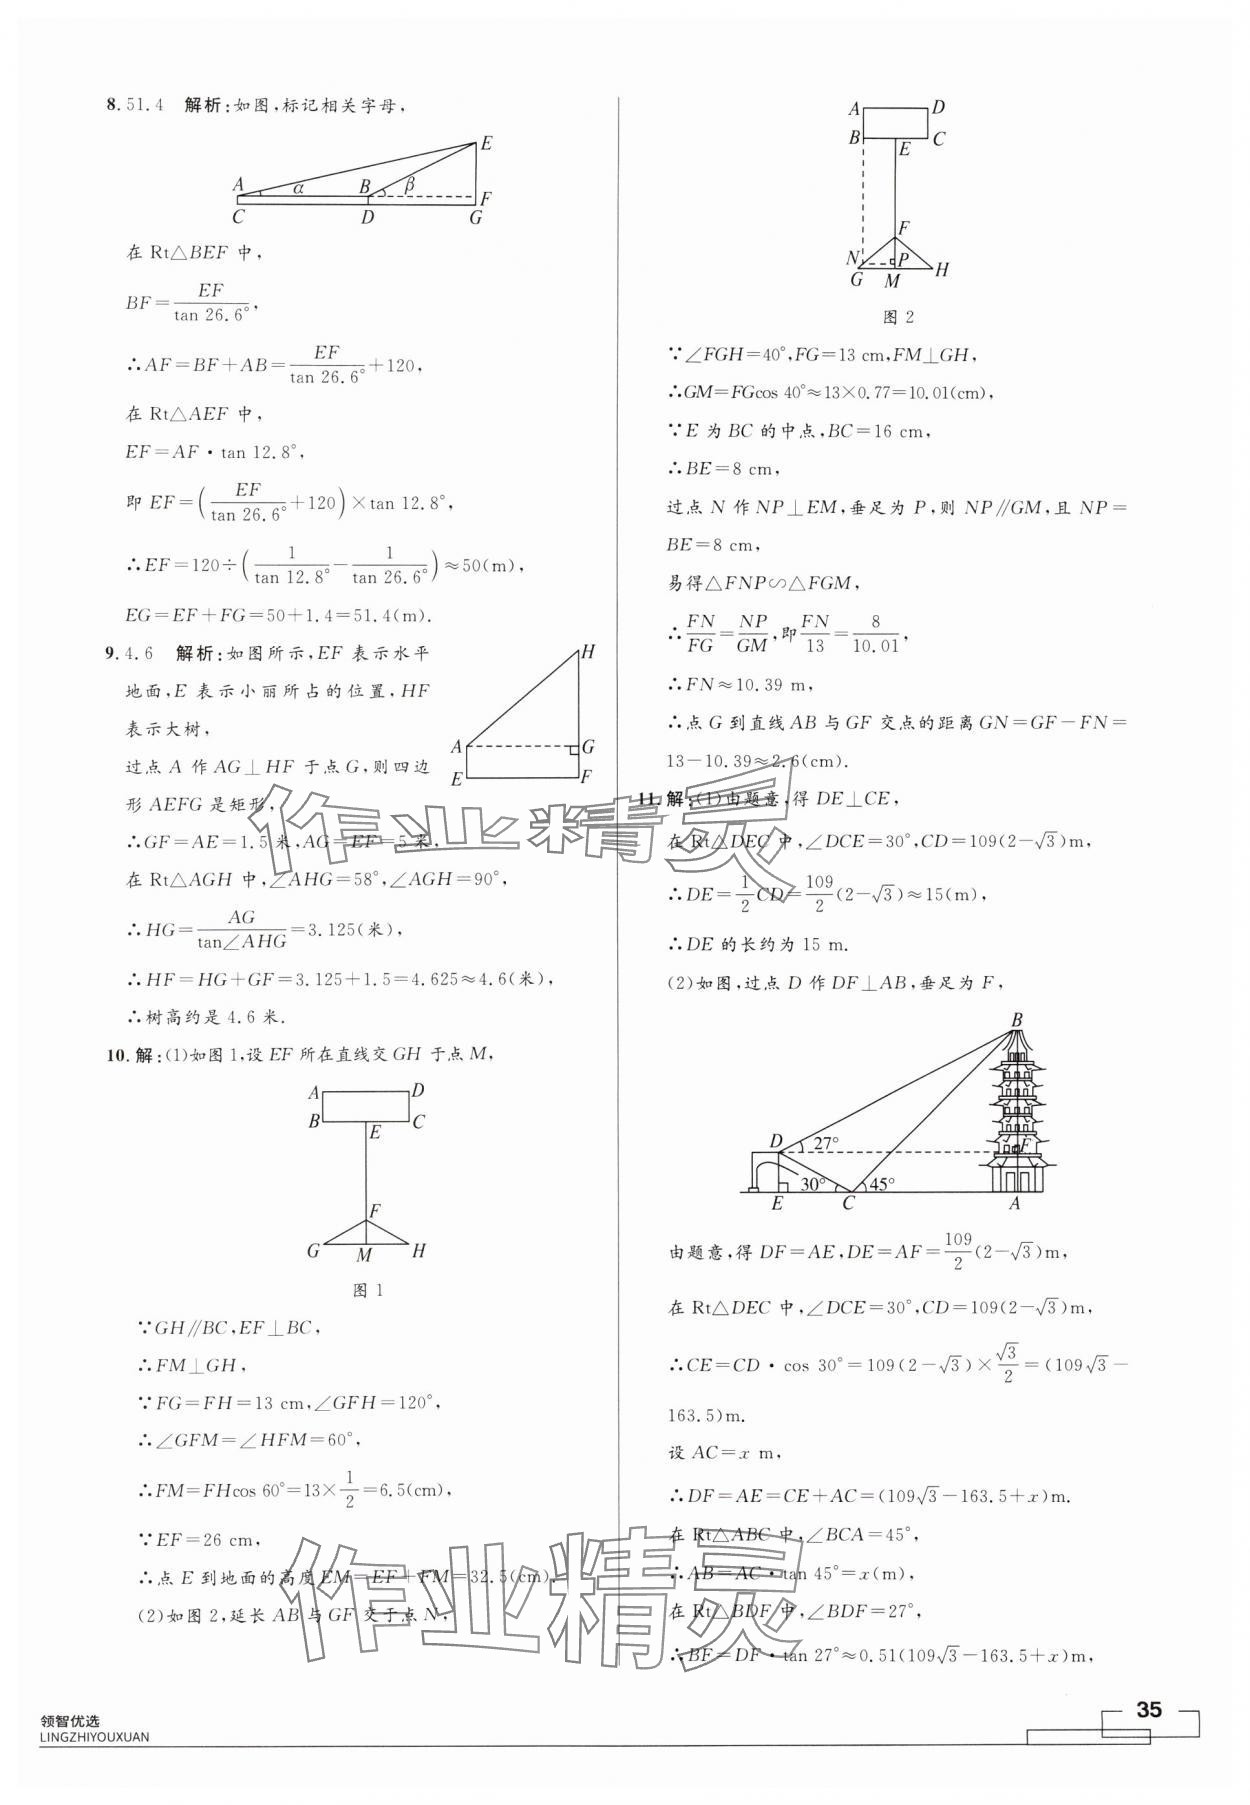 8. 51.4 解析:如图,标记相关字母,
E
A α B β F
C D G
在 Rt△BEF 中,
BF=EF/tan 26.6°,
∴AF=BF+AB=EF/tan 26.6°+120,
在 Rt△AEF 中,
EF=AF·tan 12.8°,
即 EF=(EF/tan 26.6°+120)×tan 12.8°,
∴EF=120÷(1/tan 12.8°-1/tan 26.6°)≈50(m),
EG=EF+FG=50+1.4=51.4(m).
9. 4.6 解析:如图所示,EF 表示水平
地面,E 表示小丽所占的位置,HF
表示大树,
过点 A 作 AG⊥HF 于点 G,则四边
形 AEFG 是矩形,
H
A G
E F
∴GF=AE=1.5 米,AG=EF=5 米,
在 Rt△AGH 中,∠AHG=58°,∠AGH=90°,
∴HG=AG/tan∠AHG=3.125(米),
∴HF=HG+GF=3.125+1.5=4.625≈4.6(米),
∴树高约是 4.6 米.
10. 解:(1)如图 1,设 EF 所在直线交 GH 于点 M,
A D
B E C
F
G M H
图 1
∵GH∥BC,EF⊥BC,
∴FM⊥GH,
∵FG=FH=13 cm,∠GFH=120°,
∴∠GFM=∠HFM=60°,
∴FM=FHcos 60°=13×1/2=6.5(cm),
∵EF=26 cm,
∴点 E 到地面的高度 EM=EF+FM=32.5(cm).
(2)如图 2,延长 AB 与 GF 交于点 N,
A D
B E C
F
N P
G M H
图 2
∵∠FGH=40°,FG=13 cm,FM⊥GH,
∴GM=FGcos 40°≈13×0.77=10.01(cm),
∵E 为 BC 的中点,BC=16 cm,
∴BE=8 cm,
过点 N 作 NP⊥EM,垂足为 P,则 NP∥GM,且 NP=
BE=8 cm,
易得△FNP∽△FGM,
∴FN/FG=NP/GM,即FN/13=8/10.01,
∴FN≈10.39 m,
∴点 G 到直线 AB 与 GF 交点的距离 GN=GF-FN=
13-10.39≈2.6(cm).
11. 解:(1)由题意,得 DE⊥CE,
在 Rt△DEC 中,∠DCE=30°,CD=109(2-√3)m,
∴DE=1/2CD=109/2(2-√3)≈15(m),
∴DE 的长约为 15 m.
(2)如图,过点 D 作 DF⊥AB,垂足为 F,
B
D 27° F
30° 45°
E C A
由题意,得 DF=AE,DE=AF=109/2(2-√3)m,
在 Rt△DEC 中,∠DCE=30°,CD=109(2-√3)m,
∴CE=CD·cos 30°=109(2-√3)×√3/2=(109√3-
163.5)m.
设 AC=x m,
∴DF=AE=CE+AC=(109√3-163.5+x)m.
在 Rt△ABC 中,∠BCA=45°,
∴AB=AC·tan 45°=x(m),
在 Rt△BDF 中,∠BDF=27°,
∴BF=DF·tan 27°≈0.51(109√3-163.5+x)m,
作业精灵
作业精灵
领智优选
LINGZHIYOUXUAN
35